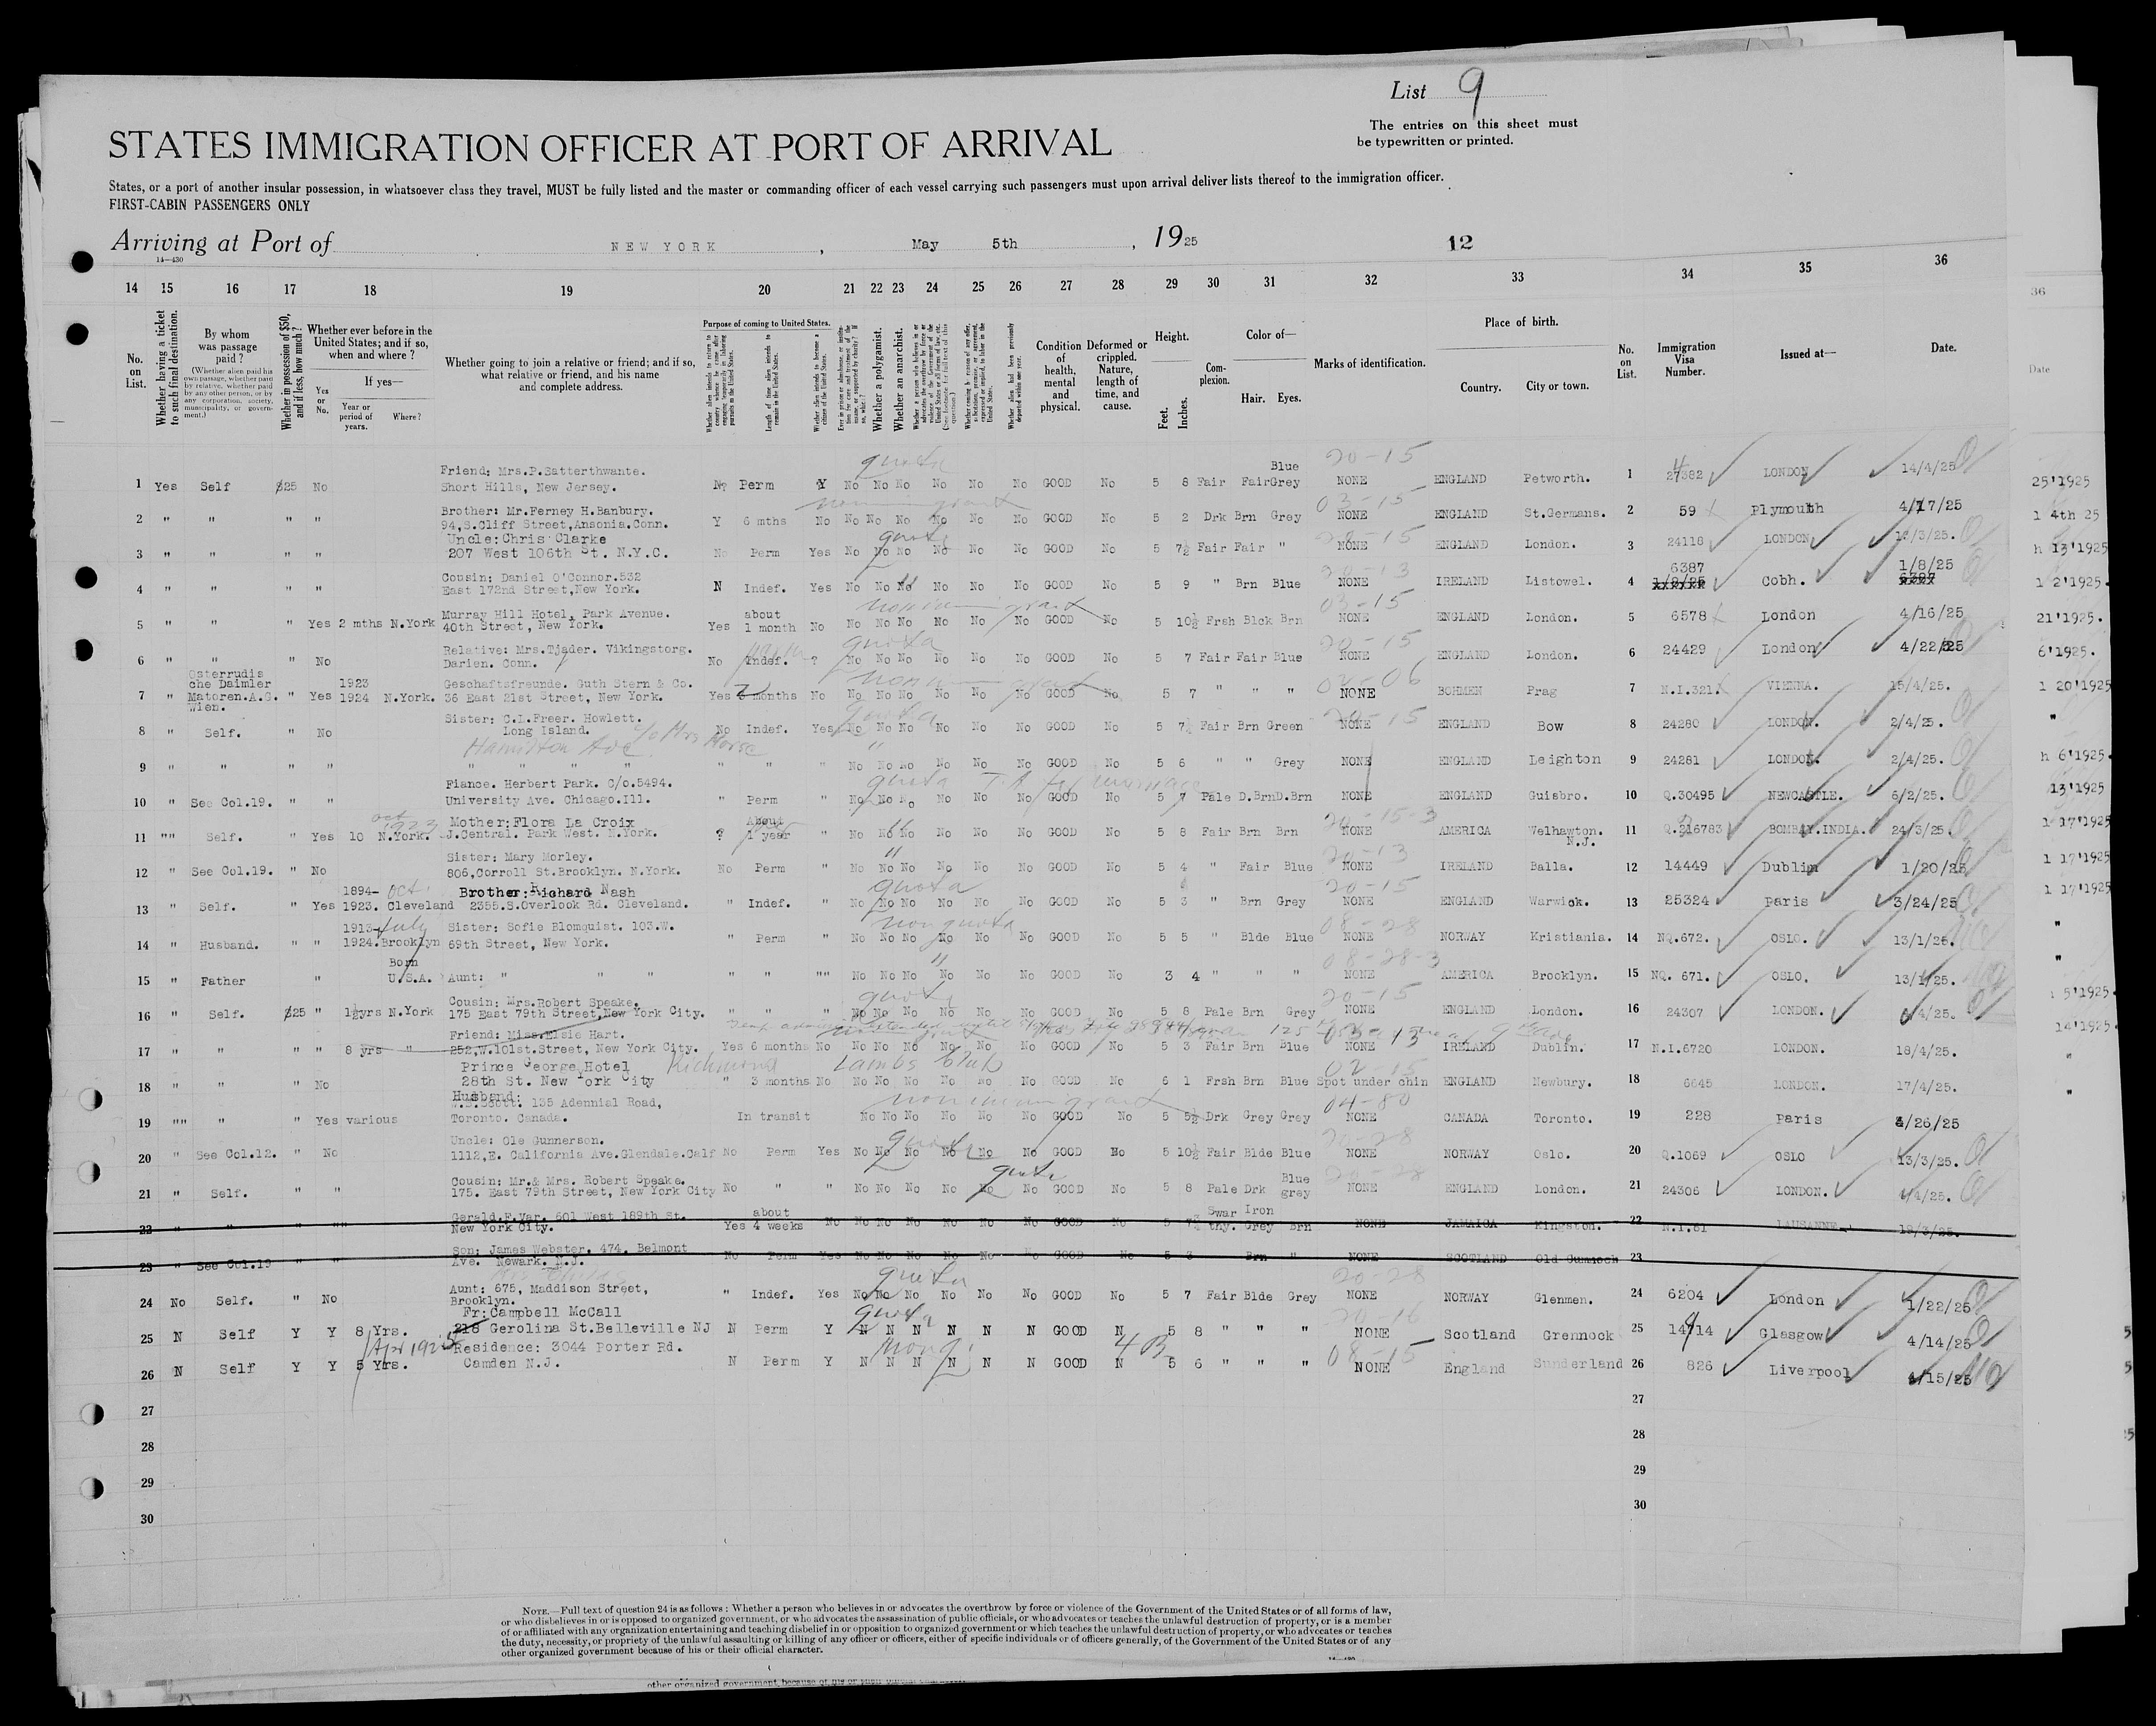 List 9
The entries on this sheet must
be typewritten or printed.
STATES IMMIGRATION OFFICER AT PORT OF ARRIVAL
States, or a port of another insular possession, in whatsoever class they travel, MUST be fully listed and the master or commanding officer of each vessel carrying such passengers must upon arrival deliver lists thereof to the immigration officer.
FIRST-CABIN PASSENGERS ONLY
Arriving at Port of NEW YORK, May 5th, 1925 12
14—430
14 15 16 17 18 19 20 21 22 23 24 25 26 27 28 29 30 31 32 33 34 35 36
No. on List.
Whether having a ticket to such final destination.
By whom was passage paid?
(Whether alien paid his own passage, whether paid by relative, whether paid by any other person, or by any corporation, society, municipality, or government.)
Whether in possession of $50, and if less, how much?
Whether ever before in the United States; and if so, when and where?
Yes or No.
If yes—
Year or period of years.
Where?
Whether going to join a relative or friend; and if so, what relative or friend, and his name and complete address.
Purpose of coming to United States.
Length of time alien intends to remain in the United States.
Whether a polygamist.
Whether an anarchist.
Condition of health, mental and physical.
Deformed or crippled. Nature, length of time, and cause.
Height.
Feet. Inches.
Complexion.
Color of—
Hair. Eyes.
Marks of identification.
Place of birth.
Country. City or town.
No. on List.
Immigration Visa Number.
Issued at—
Date.
quota 20-15
Friend: Mrs.P.Satterthwante.
1 Yes Self $25 No Short Hills, New Jersey. No Perm Y No No No No No No GOOD No 5 8 Fair Fair Blue Grey NONE ENGLAND Petworth. 1 27382 LONDON 14/4/25
non immigrant 03-15
Brother: Mr.Ferney H.Banbury.
2 " " " " 94,S.Cliff Street,Ansonia.Conn. Y 6 mths No No No No No No No GOOD No 5 2 Drk Brn Grey NONE ENGLAND St.Germans. 2 59 Plymouth 4/17/25
quota
Uncle:Chris Clarke
3 " " " " 207 West 106th St. N.Y.C. No Perm Yes No No No No No No GOOD No 5 7½ Fair Fair " NONE ENGLAND London. 3 24118 LONDON /3/25.
20-13
Cousin: Daniel O'Connor.532
4 " " " " East 172nd Street,New York. N Indef. Yes No No No No No No GOOD No 5 9 " Brn Blue NONE IRELAND Listowel. 4 6387 Cobh. 1/8/25
non immigrant 03-15
Murray Hill Hotel, Park Avenue.
5 " " " Yes 2 mths N.York 40th Street, New York. Yes about 1 month No No No No No No No GOOD No 5 10½ Frsh Blck Brn NONE ENGLAND London. 5 6578 London 4/16/25
quota 20-15
Relative: Mrs.Tjader. Vikingstorg.
6 " " " No Darien. Conn. No Indef. ? No No No No No No GOOD No 5 7 Fair Fair Blue NONE ENGLAND London. 6 24429 London 4/22/25
Osterrudis
che Daimler 1923 Geschaftsfreunde. Guth Stern & Co.
7 " Matoren.A.G. " Yes 1924 N.York. 36 East 21st Street, New York. Yes months No No No No No No No GOOD No 5 7 " " " NONE BOHMEN Prag 7 N.I.321. VIENNA. 15/4/25.
Wien.
quota 20-15
Sister: C.L.Freer. Howlett.
8 " Self. " No Long Island. No Indef. Yes No No No No No No GOOD No 5 7½ Fair Brn Green NONE ENGLAND Bow 8 24280 LONDON. 2/4/25.
Hamilton Ave c/o Mrs Morse
9 " " " " " " " " " " " No No No No No No GOOD No 5 6 " " Grey NONE ENGLAND Leighton 9 24281 LONDON. 2/4/25.
quota
Fiance. Herbert Park. C/o.5494.
10 " See Col.19. " " University Ave. Chicago.Ill. " Perm " No No No No No No GOOD No 5 7 Pale D.Brn D.Brn NONE ENGLAND Guisbro. 10 Q.30495 NEWCASTLE. 6/2/25.
oct 1923
Mother:Flora La Croix 20-15-3
11 "" Self. " Yes 10 N.York. J.Central. Park West. N.York. ? About 1 year " No No No No No No GOOD No 5 8 Fair Brn Brn NONE AMERICA Welhawton. N.J. 11 Q.216783 BOMBAY.INDIA. 24/3/25.
20-13
Sister: Mary Morley.
12 " See Col.19. " No 806,Corroll St.Brooklyn. N.York. No Perm " No No No No No No GOOD No 5 4 " Fair Blue NONE IRELAND Balla. 12 14449 Dublin 1/20/25
quota 20-15
1894- oct. Brother:Richard Nash
13 " Self. " Yes 1923. Cleveland 2355.S.Overlook Rd. Cleveland. " Indef. " No No No No No No GOOD No 5 3 " Brn Grey NONE ENGLAND Warwick. 13 25324 Paris 3/24/25
non quota 08-28
1913- July Sister: Sofie Blomquist. 103.W.
14 " Husband. " " 1924.Brooklyn 69th Street, New York. " Perm " No No No No No No GOOD No 5 5 " Blde Blue NONE NORWAY Kristiania. 14 NQ.672. OSLO. 13/1/25.
Born 08-28-3
15 " Father " U.S.A. Aunt: " " " " " "" No No No No No No GOOD No 3 4 " " " NONE AMERICA Brooklyn. 15 NQ. 671. OSLO. 13/1/25.
quota 20-15
Cousin: Mrs.Robert Speake.
16 " Self. $25 " 1½yrs N.York 175 East 79th Street,New York City. " " " No No No No No No GOOD No 5 8 Pale Brn Grey NONE ENGLAND London. 16 24307 LONDON. /4/25.
Friend: Miss.Elsie Hart.
17 " " " " 8 yrs " 252,W.101st.Street, New York City. Yes 6 months No No No No No No No GOOD No 5 3 Fair Brn Blue NONE IRELAND Dublin. 17 N.I.6720 LONDON. 18/4/25.
Richmond Lambs Club 02-15
Prince George Hotel
18 " " " No 28th St. New York City " 3 months No No No No No No No GOOD No 6 1 Frsh Brn Blue Spot under chin ENGLAND Newbury. 18 6645 LONDON. 17/4/25.
Husband: non immigrant 04-80
135 Adennial Road,
19 "" " " Yes various Toronto. Canada. In transit No No No No No No GOOD No 5 5½ Drk Grey Grey NONE CANADA Toronto. 19 228 Paris /26/25
quota 20-28
Uncle: Ole Gunnerson.
20 " See Col.12. " No 1112,E. California Ave.Glendale.Calf No Perm Yes No No No No No No GOOD No 5 10½ Fair Blde Blue NONE NORWAY Oslo. 20 Q.1069 OSLO 13/3/25.
quota
Cousin: Mr.& Mrs. Robert Speake.
21 " Self. " " 175. East 79th Street, New York City No " " No No No No No No GOOD No 5 8 Pale Drk Blue grey NONE ENGLAND London. 21 24306 LONDON. /4/25.
Gerald.F.Var. 601 West 189th St.
22 " " " "" New York City. Yes about 4 weeks No No No No No No No GOOD No 5 7½ Swar thy. Iron Grey Brn NONE JAMAICA Kingston. 22 N.I.61 LAUSANNE 18/3/25.
Son: James Webster. 474. Belmont
23 " See Col.19 " " Ave. Newark. N.J. No Perm Yes No No No No No No GOOD No 5 3 Brn " NONE SCOTLAND Old Cumnock 23
quota 20-28
Aunt: 675, Maddison Street,
24 No Self. " No Brooklyn. " Indef. Yes No No No No No No GOOD No 5 7 Fair Blde Grey NONE NORWAY Glenmen. 24 6204 London 1/22/25
Fr:Campbell McCall quota 20-16
25 N Self Y Y 8 Yrs. 218 Gerolina St.Belleville NJ N Perm Y N N N N N N GOOD N 5 8 " " " NONE Scotland Grennock 25 14714 Glasgow 4/14/25
Apr 1925 Residence: 3044 Porter Rd. 08-15
26 N Self Y Y 5 Yrs. Camden N.J. N Perm Y N N N N N N GOOD N 5 6 " " " NONE England Sunderland 26 826 Liverpool 4/15/25
27 27
28 28
29 29
30 30
NOTE.—Full text of question 24 is as follows: Whether a person who believes in or advocates the overthrow by force or violence of the Government of the United States or of all forms of law,
or who disbelieves in or is opposed to organized government, or who advocates the assassination of public officials, or who advocates or teaches the unlawful destruction of property, or is a member
of or affiliated with any organization entertaining and teaching disbelief in or opposition to organized government or which teaches the unlawful destruction of property, or who advocates or teaches
the duty, necessity, or propriety of the unlawful assaulting or killing of any officer or officers, either of specific individuals or of officers generally, of the Government of the United States or of any
other organized government because of his or their official character.